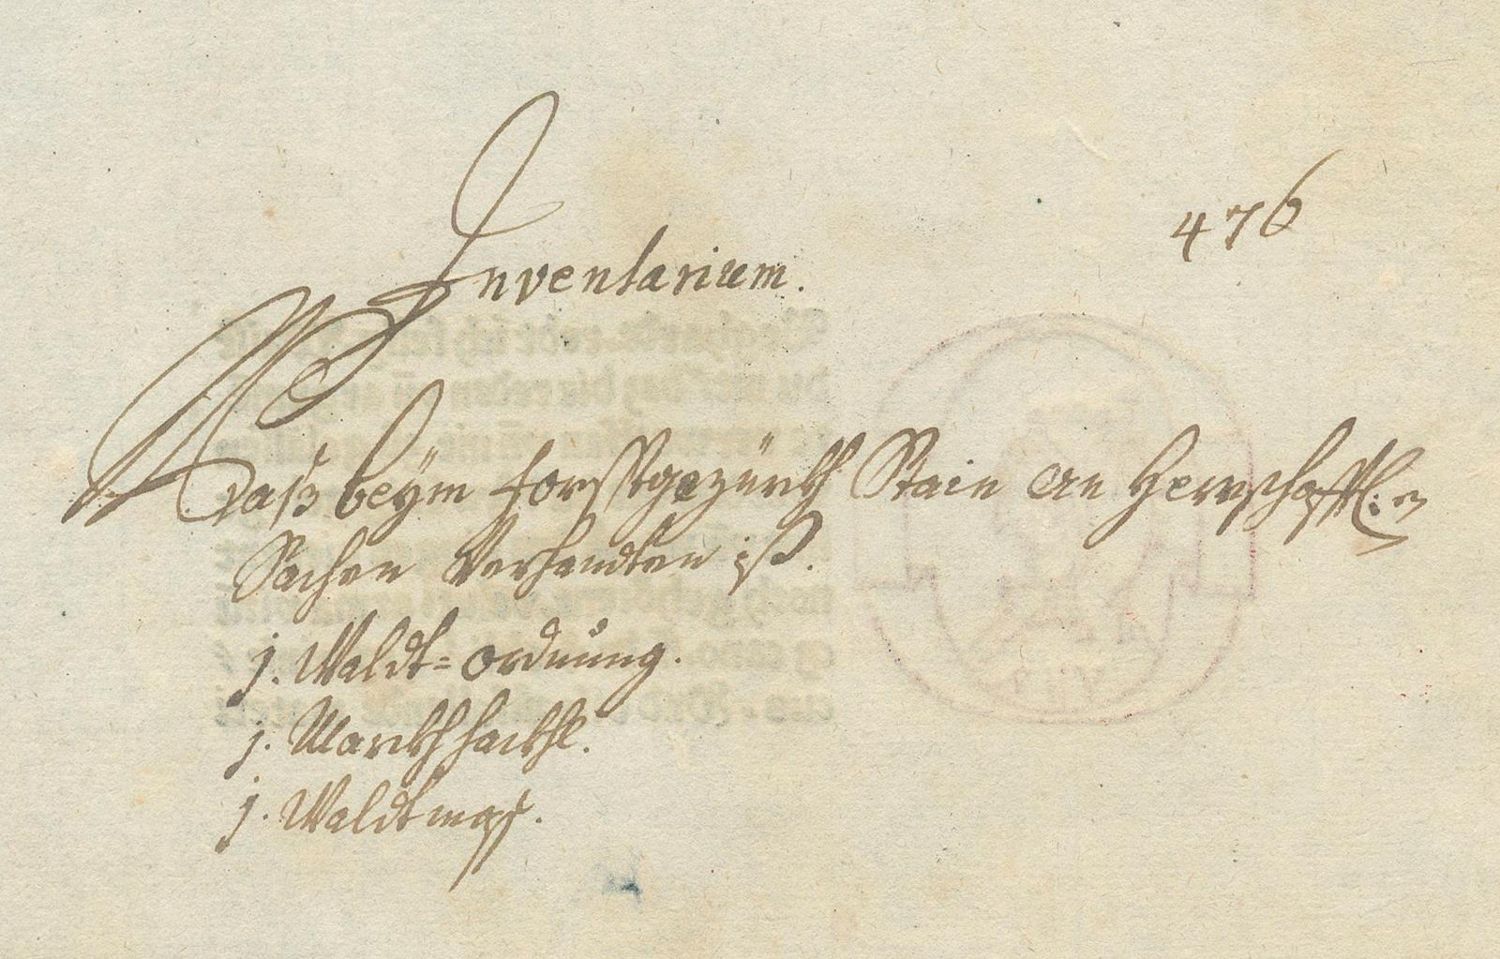 476
Inventarium.
Waß beÿm Forsstgezürkh Stain an Herrschafftl:n
Sachen Verhandten ist.
j. Waldt=ordnung.
j. Markhhackhl.
j. Waldtmaß.